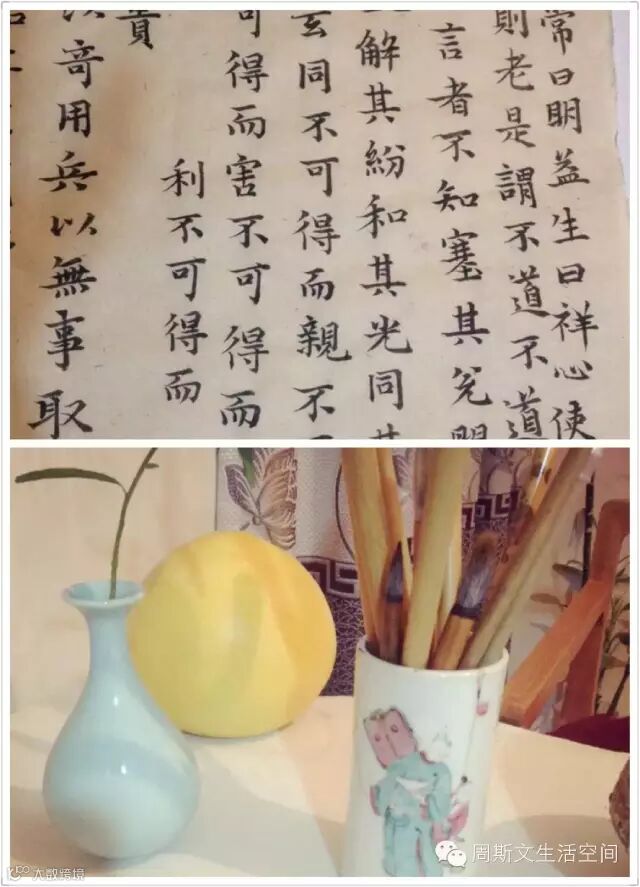 常曰明益生曰祥心使
則老是謂不道不道
言者不知塞其兌
解其紛和其光同其
玄同不可得而親不
可得而害不可得而
利不可得而
貴
以奇用兵以無事取
周斯文生活空间
大数跨境